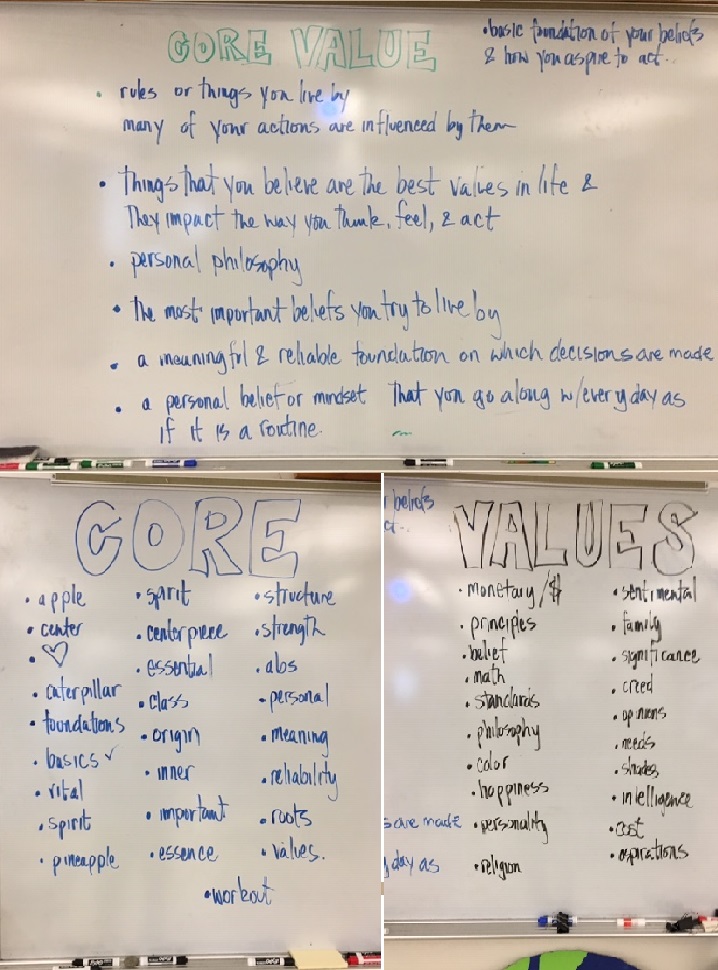 CORE VALUE
• basic foundation of your beliefs
& how you aspire to act..
• rules or things you live by
many of your actions are influenced by them
• Things that you believe are the best values in life &
They impact the way you think, feel, & act
• personal philosophy
• The most important beliefs you try to live by
• a meaningful & reliable foundation on which decisions are made
• a personal belief or mindset That you go along w/every day as
if it is a routine.
CORE
• apple
• center
• ♡
• caterpillar
• foundations
• basics ✓
• vital
• spirit
• pineapple
• spirit
• centerpiece
• essential
• class
• origin
• inner
• important
• essence
• structure
• strength
• abs
• personal
• meaning
• reliability
• roots
• values.
• workout
beliefs
ct..
s are made
day as
VALUES
• monetary/$
• principles
• belief
• math
• standards
• philosophy
• color
• happiness
• personality
• religion
• sentimental
• family
• significance
• creed
• opinions
• needs
• shades
• intelligence
• cost
• aspirations